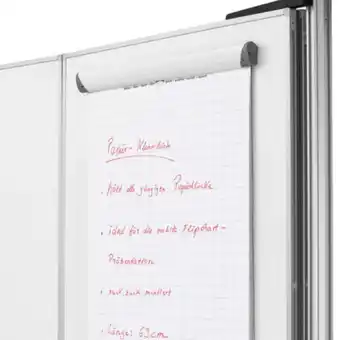 Papier-
• Hält alle gängigen Papierblöcke
• ideal für die mobile Flipchart-
Präsentation
• auch montiert
• Länge: 69cm